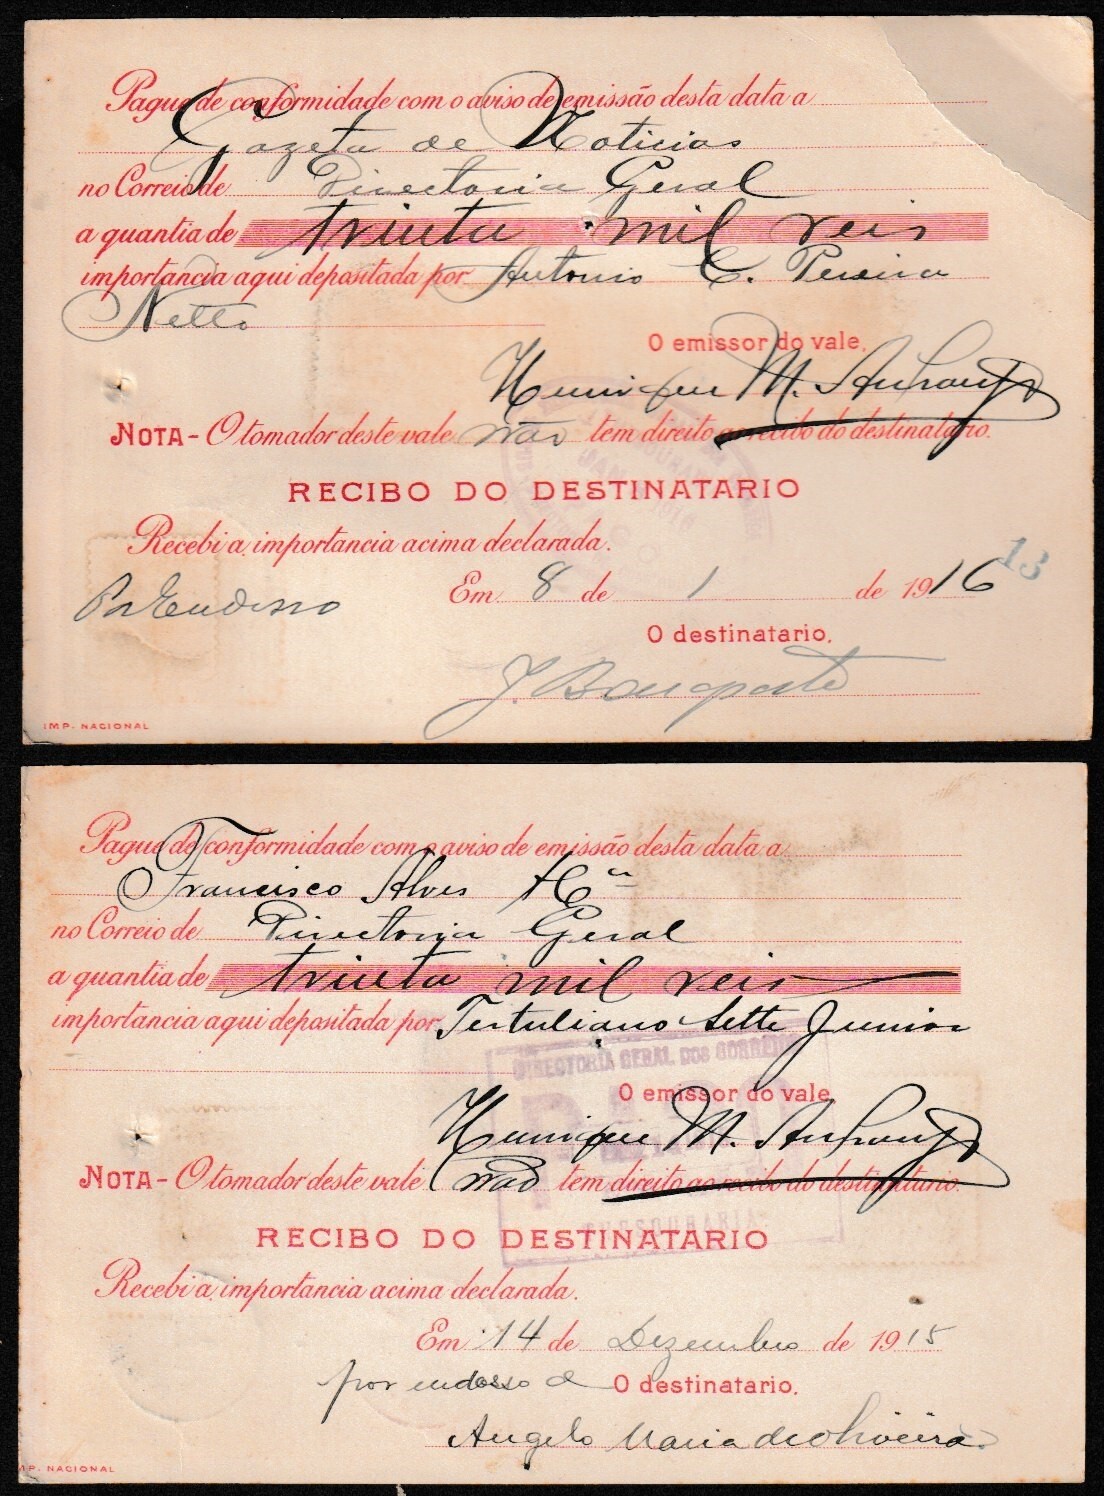 Pague de conformidade com o aviso de emissão desta data a
Gazeta de Noticias
no Correio de Directoria Geral
a quantia de trinta mil reis
importancia aqui depositada por Antonio C. Pereira
Netto
O emissor do vale,
Henrique M.
NOTA - O tomador deste vale não tem direito ao recibo do destinatario.
RECIBO DO DESTINATARIO
Recebi a importancia acima declarada.
13
Em 8 de 1 de 1916
Por Endosso
O destinatario,
J. Bonaparte
IMP. NACIONAL
Pague de conformidade com o aviso de emissão desta data a
Francisco Alves & Cia
no Correio de Directoria Geral
a quantia de trinta mil reis
importancia aqui depositada por Tertuliano Sette Junior
DIRECTORIA GERAL DOS CORREIOS
O emissor do vale,
PAGO
Henrique M.
NOTA - O tomador deste vale não tem direito ao recibo do destinatario.
THESOURARIA
RECIBO DO DESTINATARIO
Recebi a importancia acima declarada.
Em 14 de Dezembro de 1915
por endosso de O destinatario,
Angelo Maria de Oliveira
IMP. NACIONAL